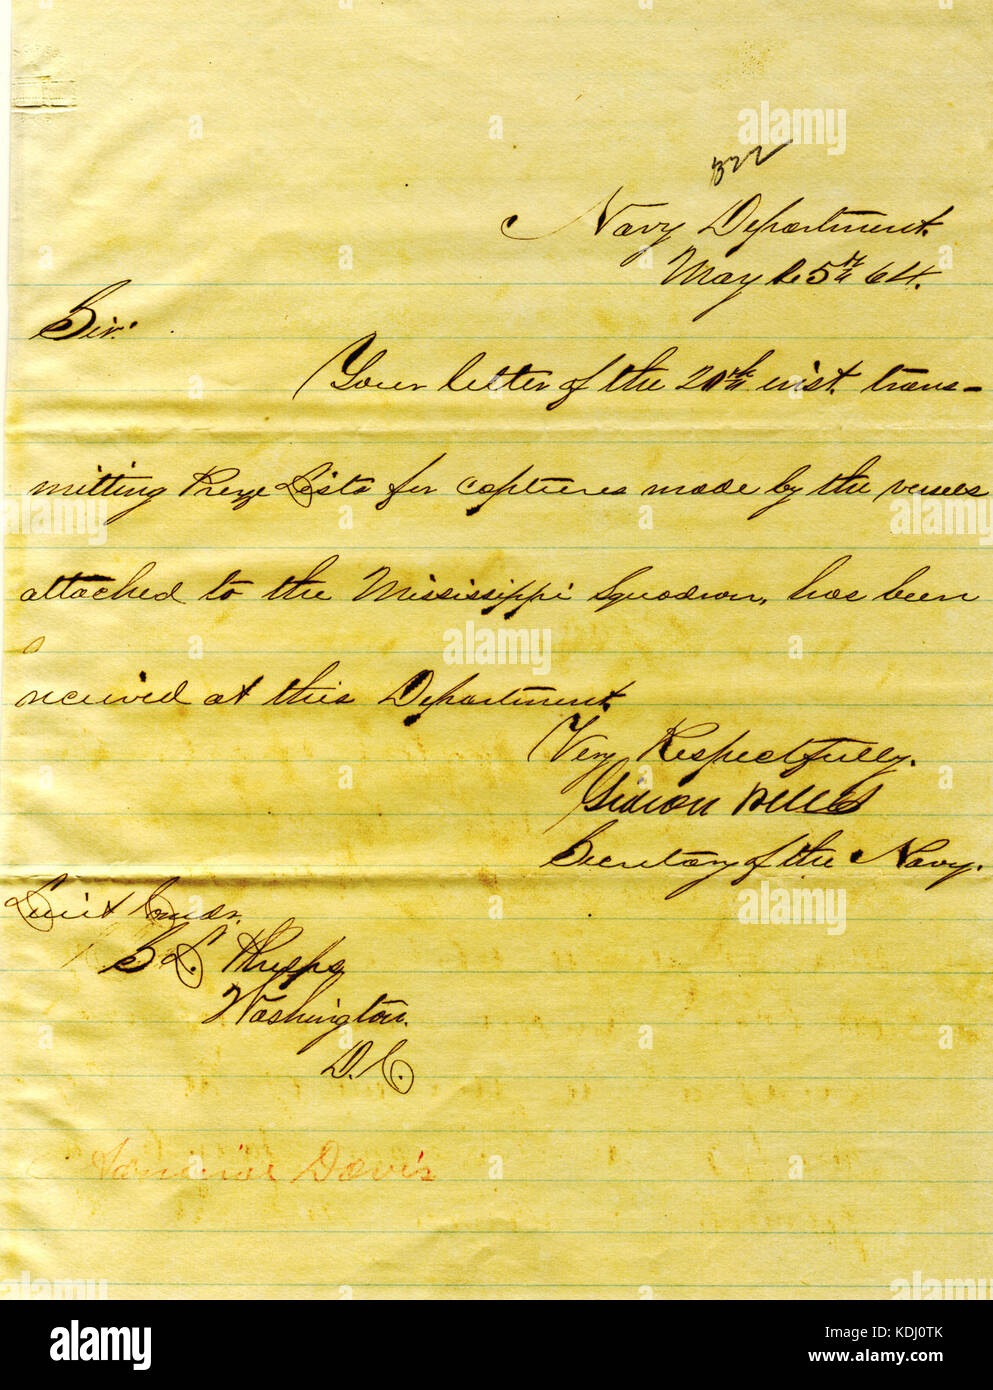 322
Navy Department.
May 25th 64.
Sir:
Your letter of the 20th inst. trans-
mitting Prize Lists for captures made by the vessels
attached to the Mississippi Squadron, has been
received at this Department.
Very Respectfully,
Gideon Welles
Secretary of the Navy.
Lieut Comdr.
S. L. Phelps
Washington
D.C.
Davis
alamy
www.alamy.com
Image ID: KDJ0TK